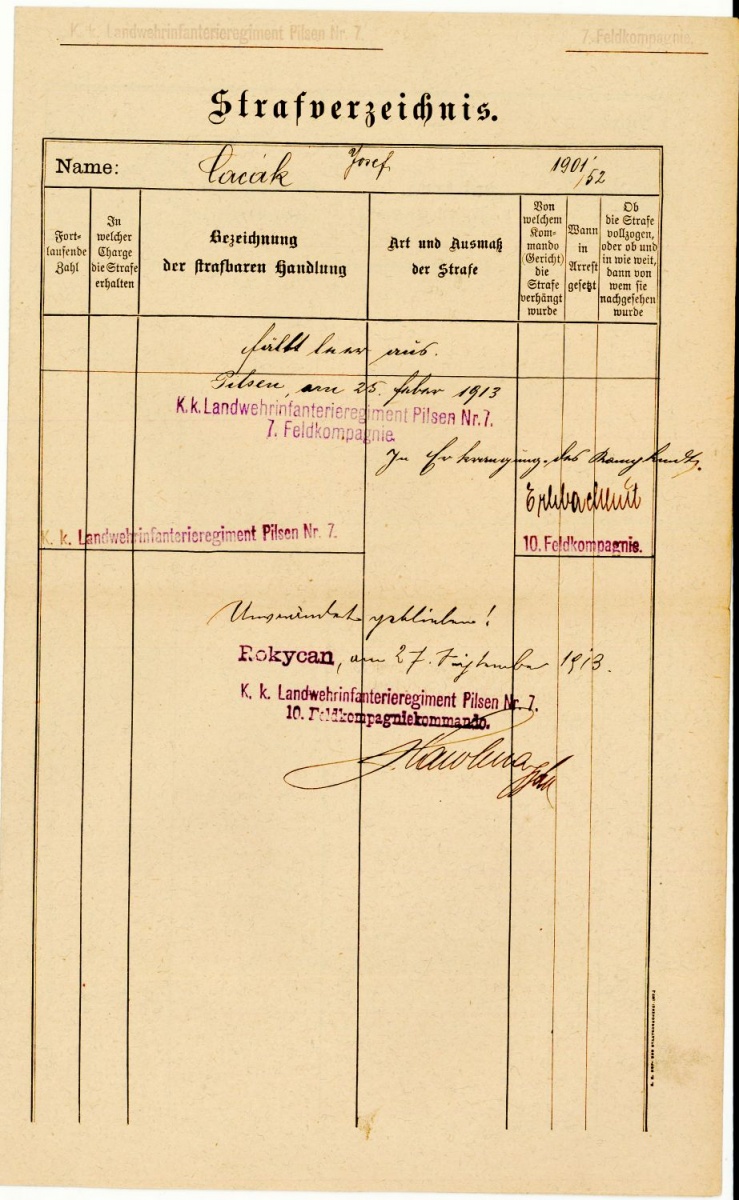 K. k. Landwehrinfanterieregiment Pilsen Nr. 7. 7. Feldkompagnie.
Strafverzeichnis.
Name: Cacák Josef 1901/52
Fort-
laufende
Zahl
In
welcher
Charge
die Strafe
erhalten
Bezeichnung
der strafbaren Handlung
Art und Ausmaß
der Strafe
Von
welchem
Kom-
mando
(Gericht)
die
Strafe
verhängt
wurde
Wann
in
Arrest
gesetzt
Ob
die Strafe
vollzogen,
oder ob und
in wie weit,
dann von
wem sie
nachgesehen
wurde
fällt leer aus.
Pilsen, am 25. feber 1913
K. k. Landwehrinfanterieregiment Pilsen Nr. 7.
7. Feldkompagnie.
In Ermangung des Kompkmdt.
K. k. Landwehrinfanterieregiment Pilsen Nr. 7.
10. Feldkompagnie.
Unverändert geblieben!
Rokycan, am 27. September 1913.
K. k. Landwehrinfanterieregiment Pilsen Nr. 7.
10. Feldkompagniekommando.